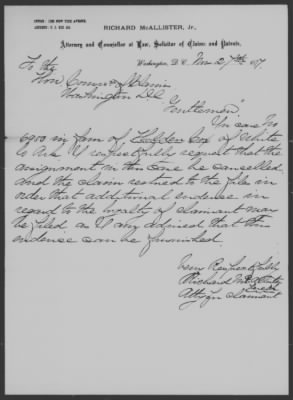 OFFICE: 1425 NEW YORK AVENUE.
RICHARD McALLISTER, Jr.,
Attorney and Counsellor at Law, Solicitor of Claims and Patents,
Washington, D. C. Nov 27th
To the
Hon Comrs of Claims
Washington D.C.
Gentlemen
In case No
in favor of of White
Co Ark I respectfully request that the
assignment in this case be cancelled
and the claim restored to the files in
order that additional evidence in
regard to the loyalty of claimant may
be filed, as I am advised that this
evidence can be furnished.
Very Respectfully
Richard McAllister
Atty for claimant